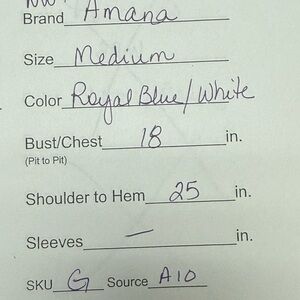 NWT
Brand Amana
Size Medium
Color Royal Blue/White
Bust/Chest 18 in.
(Pit to Pit)
Shoulder to Hem 25 in.
Sleeves — in.
SKU G Source A10